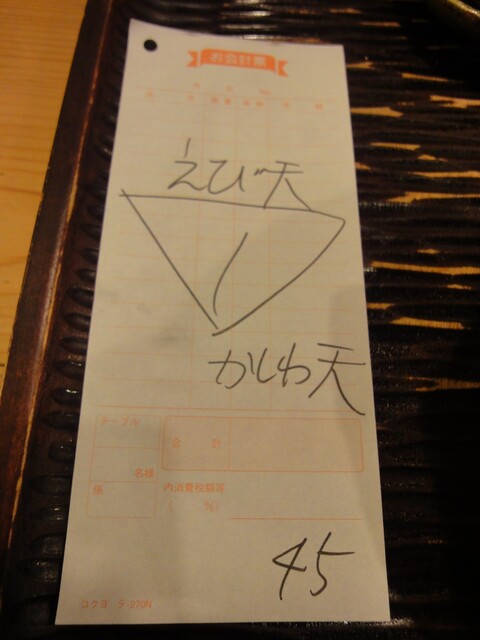 お会計票
えび天
1
かしわ天
テーブル
名様
係
合計
内消費税額等
( %)
45
コクヨ テ-270N